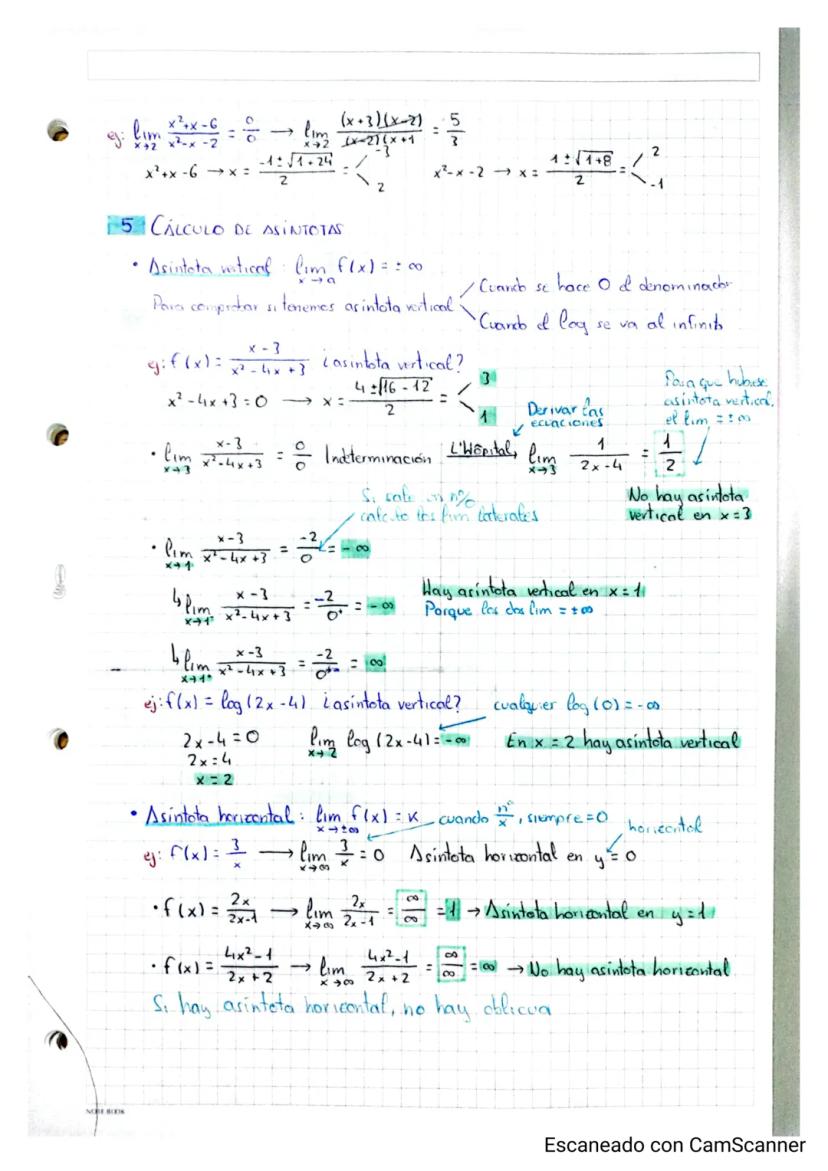 ej: lim x→2 x²+x-6 / x²-x-2 = 0/0 → lim x→2 (x+3)(x-2) / (x-2)(x+1 = 5/3
x²+x-6 → x = -1±√1+24 / 2 = < -3 2 x²-x-2 → x = 1±√1+8 / 2 = < 2 -1
5 CÁLCULO DE ASÍNTOTAS
• Asíntota vertical: lim x→a f(x) = ±∞
Para comprobar si tenemos asíntota vertical < Cuando se hace 0 el denominador
Cuando el log se va al infinito
ej: f(x) = x-3 / x²-4x+3 ¿asíntota vertical?
x²-4x+3=0 → x = 4±√16-12 / 2 = < 3 1
Derivar las ecuaciones
Para que hubiese
asíntota vertical,
el lim = ±∞
• lim x→3 x-3 / x²-4x+3 = 0/0 Indeterminación L'Hôpital, lim x→3 1 / 2x-4 = 1/2
No hay asíntota
vertical en x=3
Si sale un nº/0
calculo los lim laterales
• lim x→1 x-3 / x²-4x+3 = -2/0 = -∞
↳ lim x→1⁻ x-3 / x²-4x+3 = -2/0⁺ = -∞
Hay asíntota vertical en x=1
Porque los dos lim = ±∞
↳ lim x→1⁺ x-3 / x²-4x+3 = -2/0⁻ = ∞
ej: f(x) = log(2x-4) ¿asíntota vertical? cualquier log(0) = -∞
2x-4=0 lim x→2 log(2x-4) = -∞ En x=2 hay asíntota vertical
2x=4
x=2
• Asíntota horizontal: lim x→±∞ f(x) = K cuando nº/x, siempre=0
horizontal
ej: f(x) = 3/x → lim x→∞ 3/x = 0 Asíntota horizontal en y=0
• f(x) = 2x / 2x-1 → lim x→∞ 2x / 2x-1 = ∞/∞ = 1 → Asíntota horizontal en y=1
• f(x) = 4x²-1 / 2x+2 → lim x→∞ 4x²-1 / 2x+2 = ∞/∞ = ∞ → No hay asíntota horizontal
Si hay asíntota horizontal, no hay oblicua
NOTE BOOK
Escaneado con CamScanner